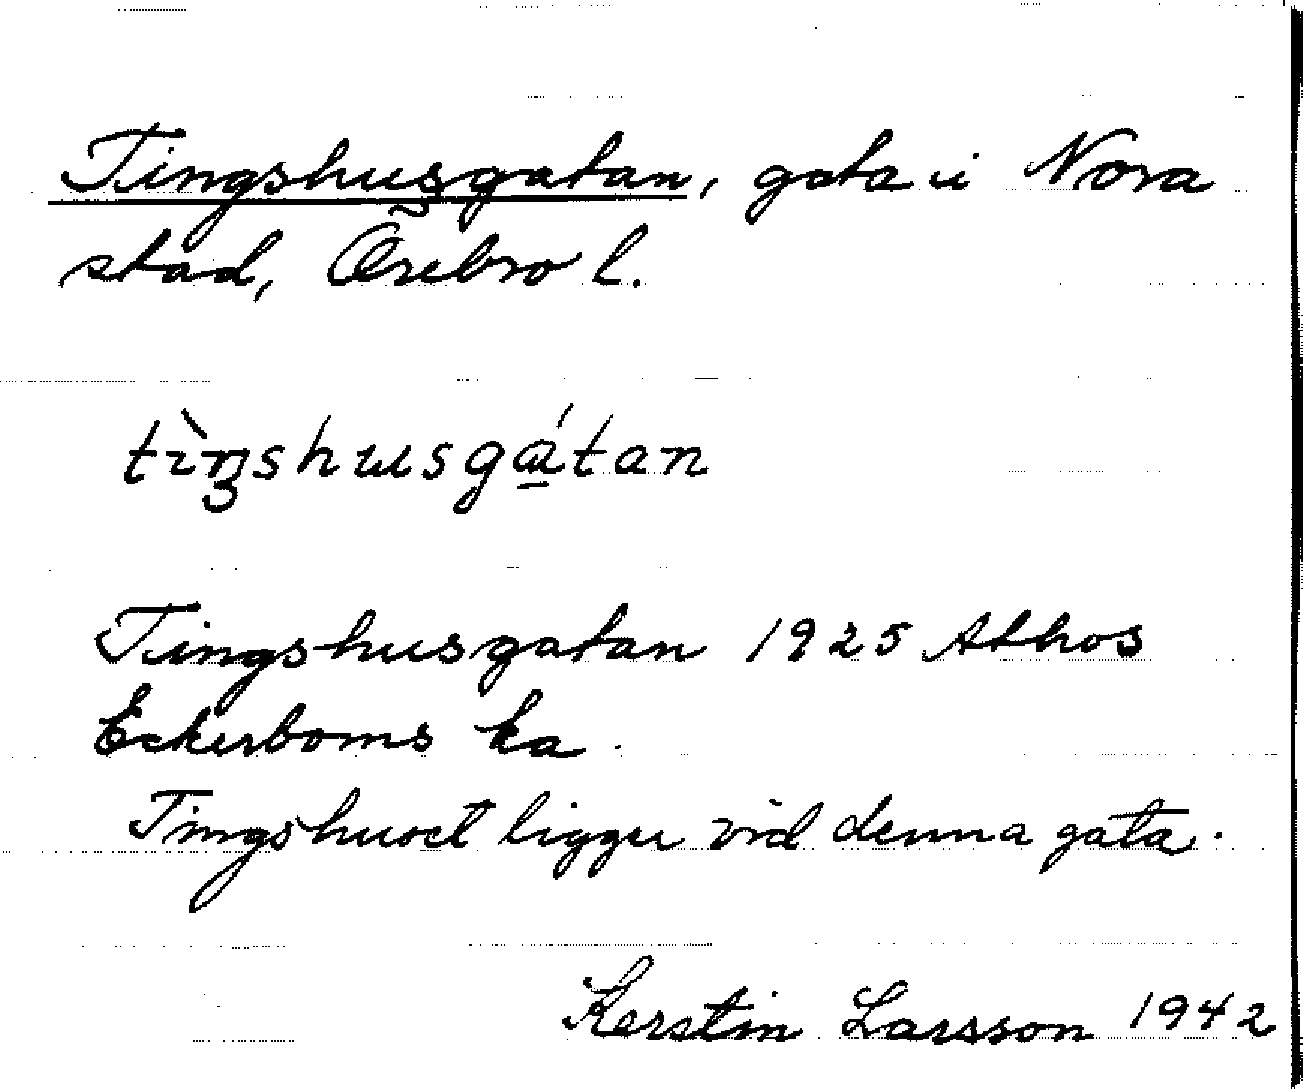 Tingshusgatan, gata i Nora
stad, Örebro l.
tìŋshusgɑ́tan
Tingshusgatan 1925 Athos
Eckerboms ka
Tingshuset ligger vid denna gata.
Kerstin Larsson 1942